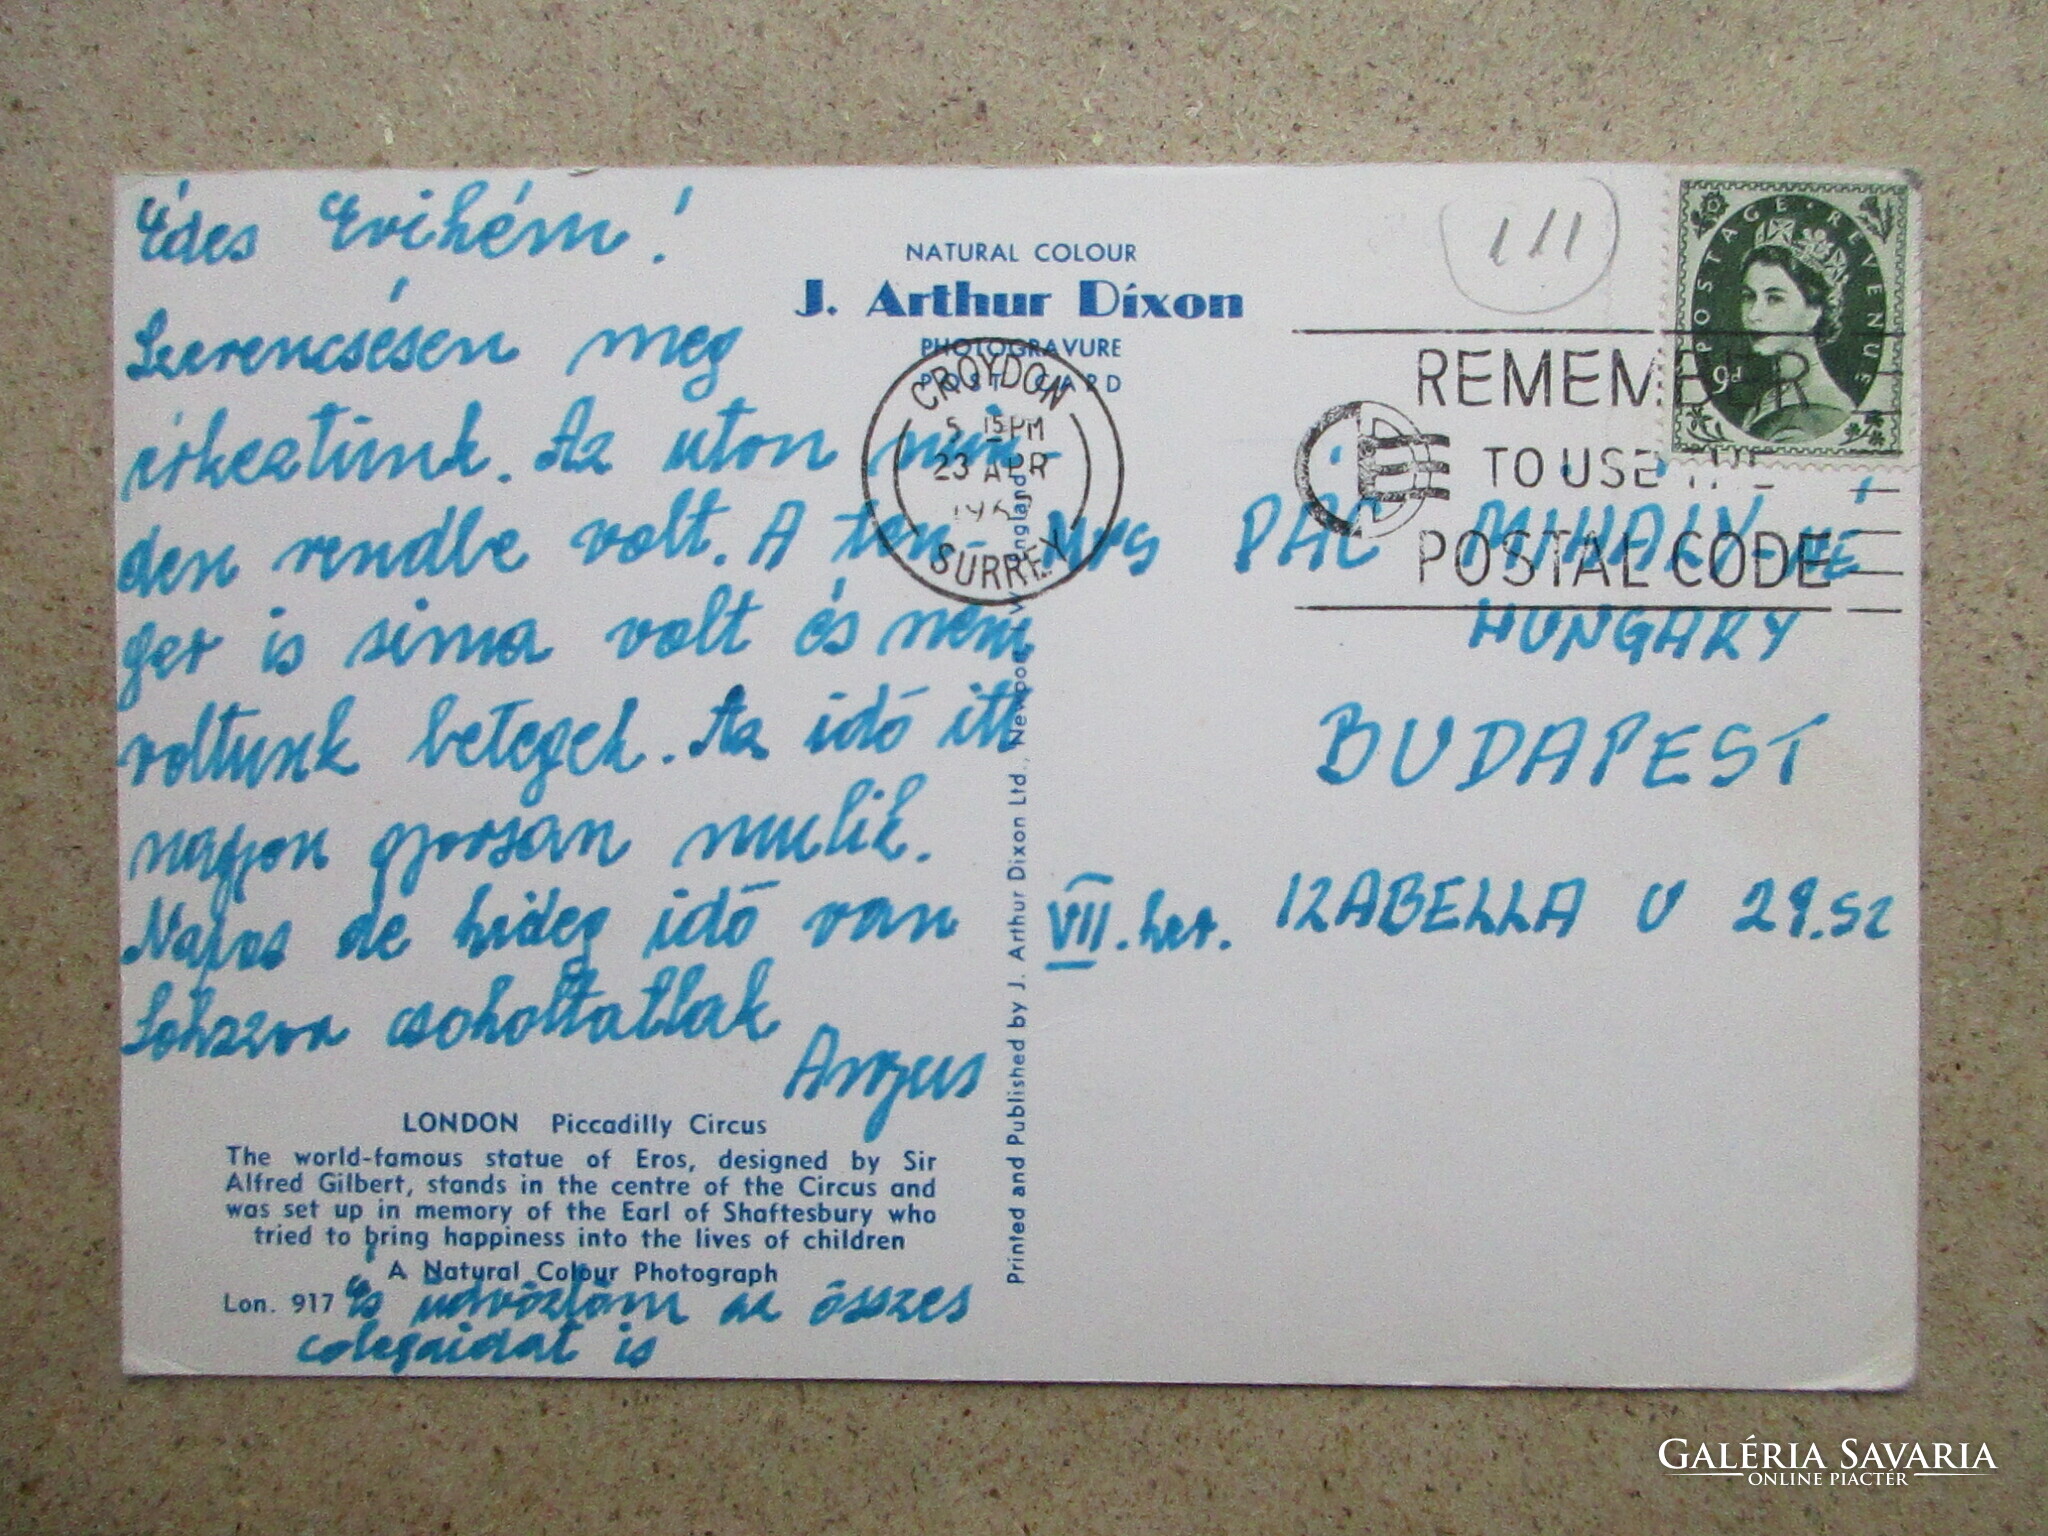 Édes Evihém!
Szerencsésen meg
érkeztünk. Az uton min-
den rendbe volt. A ten-
ger is sima volt és nem
voltunk betegek. Az idő itt
nagyon gyorsan mulik.
Napos de hideg idő van
Sokszor csoholtatlak
Angus
LONDON Piccadilly Circus
The world-famous statue of Eros, designed by Sir
Alfred Gilbert, stands in the centre of the Circus and
was set up in memory of the Earl of Shaftesbury who
tried to bring happiness into the lives of children
A Natural Colour Photograph
Lon. 917
És üdvözlöm az összes
colegaidat is
NATURAL COLOUR
J. Arthur Dixon
PHOTOGRAVURE
POST CARD
Printed and Published by J. Arthur Dixon Ltd., Newport I.W. England
CROYDON
5 15 PM
23 APR
SURREY
111
REMEMBER
TO USE THE
POSTAL CODE
POSTAGE REVENUE
9d
Mrs PÁL MIHÁLY-NÉ
HUNGARY
BUDAPEST
VII. ker. IZABELLA U 29.SZ
GALÉRIA SAVARIA
ONLINE PIACTÉR